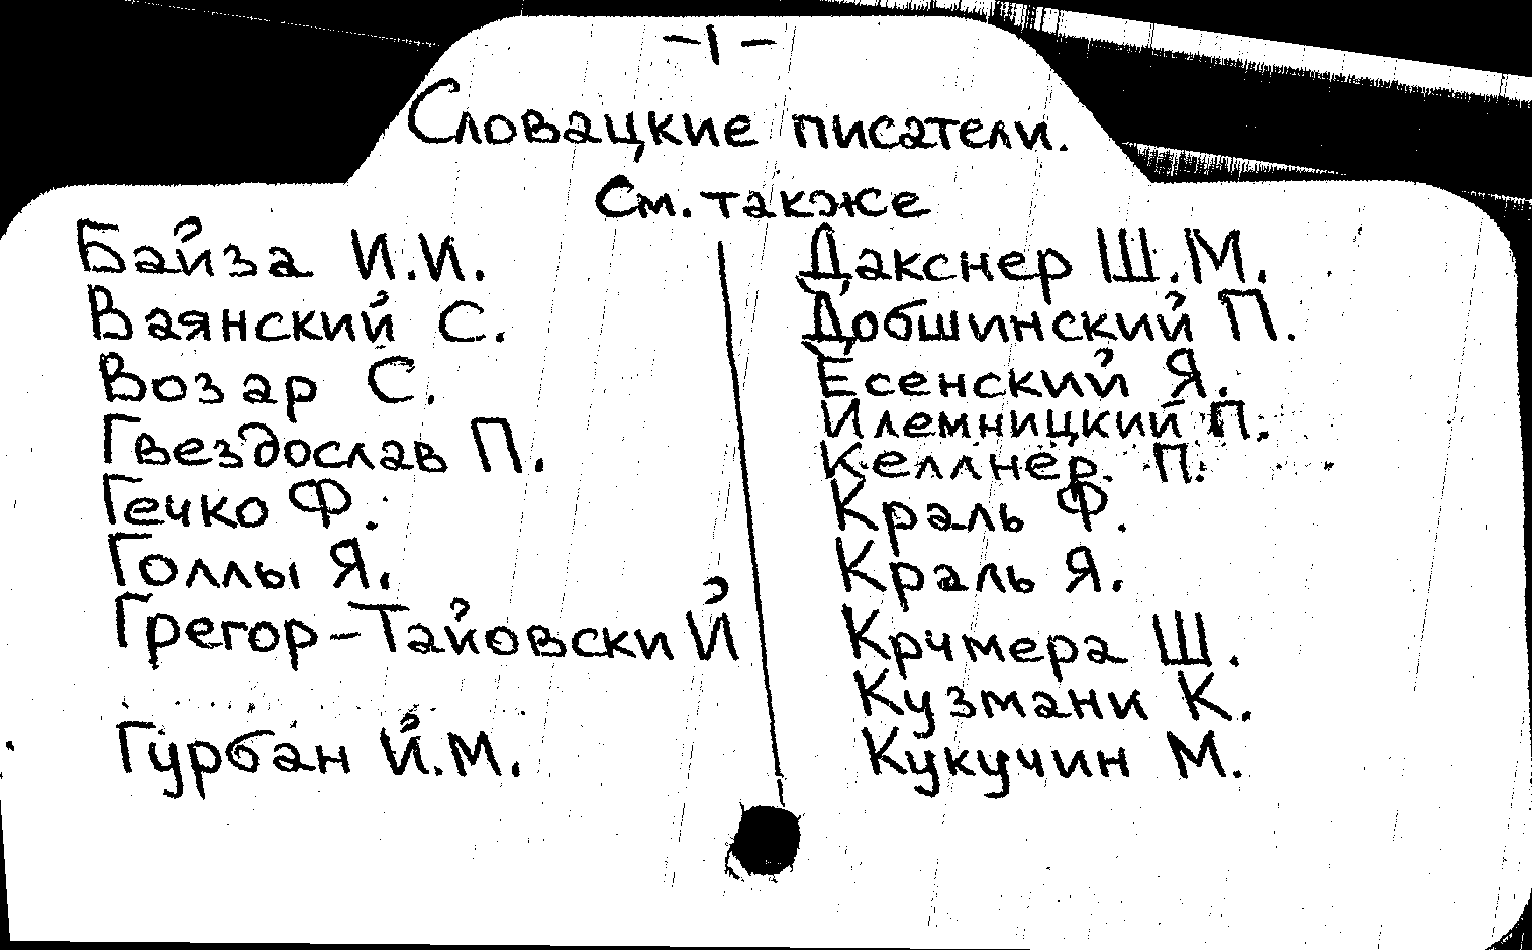 -1-
Словацкие писатели.
См. также
Байза И.И.
Ваянский С.
Возар С.
Гвездослав П.
Гечко Ф.
Голлы Я.
Грегор-Тайовский Й
Гурбан Й.М.
Дакснер Ш.М.
Добшинский П.
Есенский Я.
Илемницкий П.
Келлнер. П.
Краль Ф.
Краль Я.
Крчмера Ш.
Кузмани К.
Кукучин М.